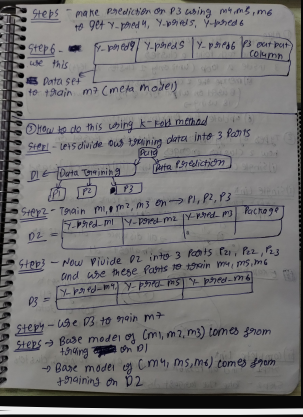 Step5 - make Prediction on P3 using m4, m5, m6
to get Y-pred4, Y-pred5, Y-pred6
Step6 -
use this
Data set
to train m7 (meta model)
Y-pred4 Y-pred5 Y-pred6 P3 output
column
How to do this using k-fold method
Step1 - lets divide our training data into 3 Parts
Data
D1 Data Training Data Prediction
P1 P2 P3
Step2 - Train m1, m2, m3 on → P1, P2, P3
D2 = Y-pred-m1 Y-pred-m2 Y-pred-m3
Step3 - Now Divide D2 into 3 Parts P21, P22, P23
and use these Parts to train m4, m5, m6
D3 = Y-pred-m4 Y-pred-m5 Y-pred-m6
Step4 - use D3 to train m7
Step5 → Base model of (m1, m2, m3) comes from
on D1
→ Base model of (m4, m5, m6) comes from
training on D2